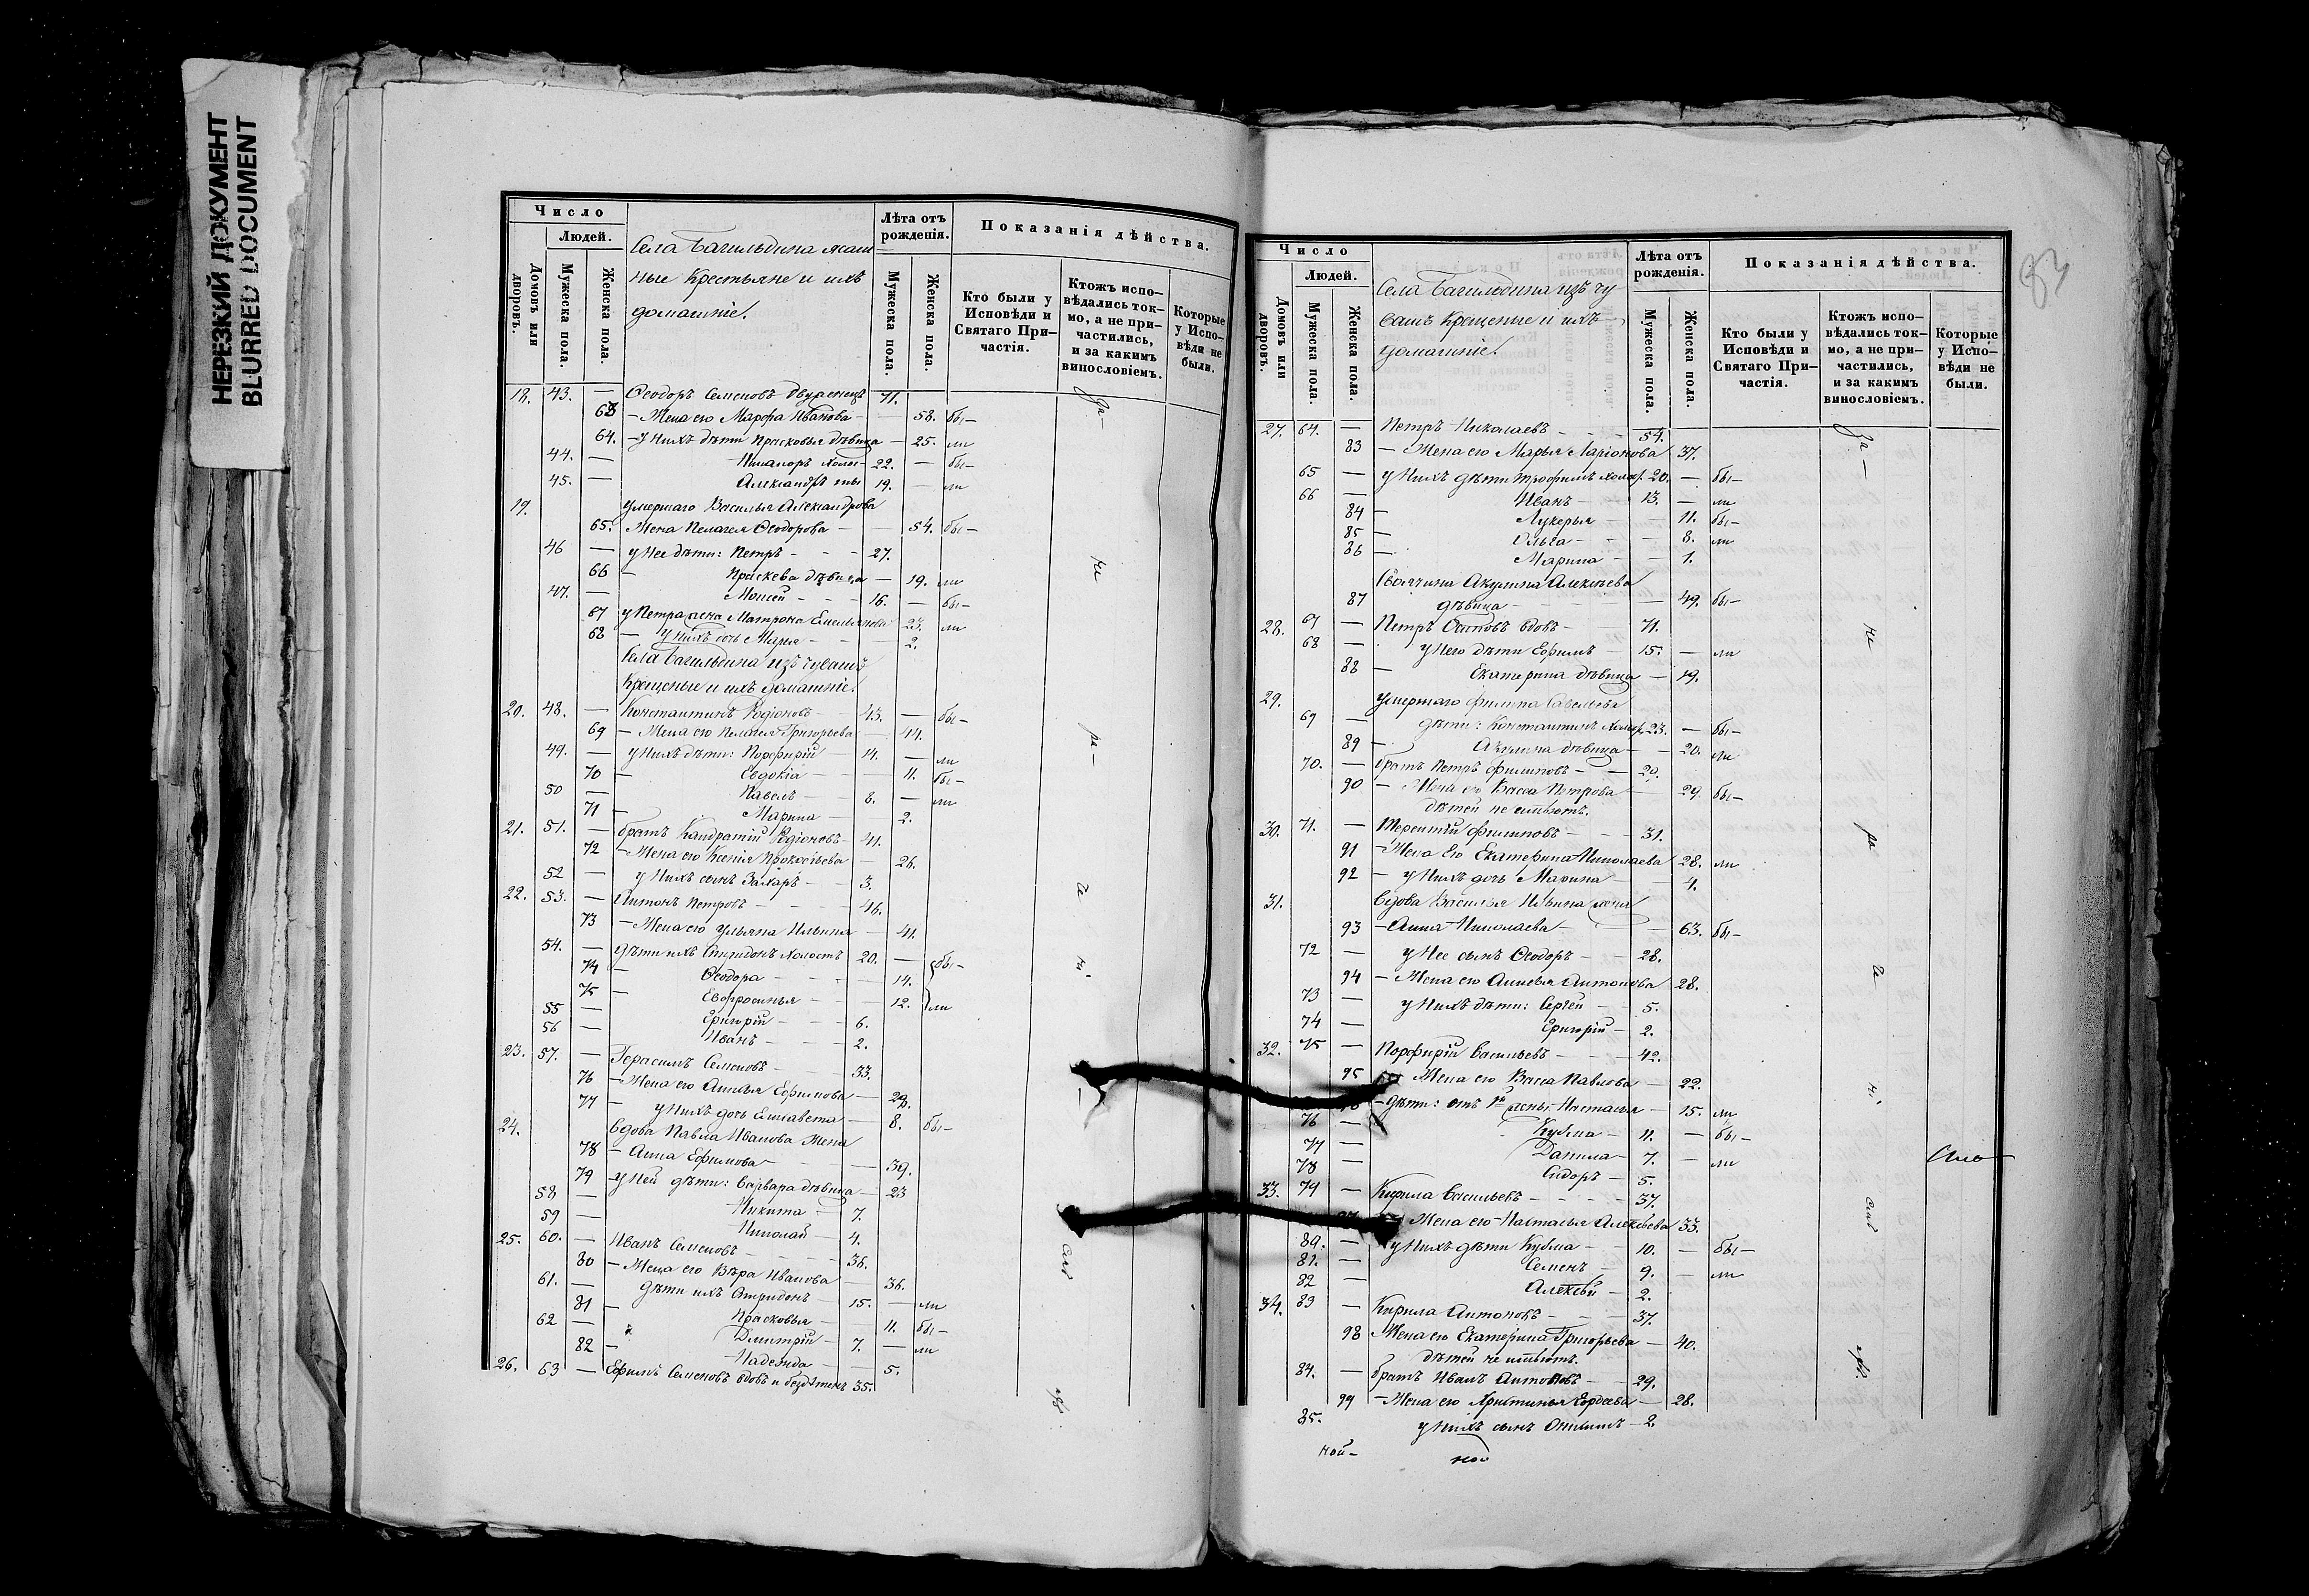 НЕРЕЗКИЙ ДОКУМЕНТ
BLURRED DOCUMENT
Число
Людей.
Домовъ или дворовъ.
Мужеска пола.
Женска пола.
Села Багильдина
ные Крестьяне и ихъ
домашніе.
Лѣта отъ рожденія.
Мужеска пола.
Женска пола.
Показанія дѣйства.
Кто были у Исповѣди и Святаго Причастія.
Ктожъ исповѣдались токмо, а не причастились, и за какимъ винословіемъ.
Которые у Исповѣди не были.
18. 43. — Ѳеодоръ Семеновъ 71.
63 — Жена его Марфа Иванова — 58. бы—
64. — у нихъ дѣти Прасковья дѣвица — 25. ли
44. — Никаноръ холос— 22. — бы—
45. — Александръ 19. — ли
19. умершаго Василья Александрова
65. Жена Пелагея Ѳеодорова — 54. бы—
46 — у нее дѣти: Петръ — 27.
66 — Праскева дѣвица — 19. ли
47. — Моисей — 16. — бы—
67 у Петра жена Матрона Емельянова 23. ли
68 — у нихъ дочь Марья — 2.
Села Багильдина изъ чувашъ
Крещеные и ихъ домашніе.
20. 48. — Константинъ Родіоновъ — 43. — бы—
69 — Жена его Пелагея Григорьева — 44.
49. — у нихъ дѣти: Порфирій 14. — ли
70 — Евдокія — 11. бы—
50 — Павелъ — 8. — ли
71 — Марина — 2.
21. 51. — братъ Кандратій Родіоновъ — 41.
72 — Жена его Ксенія Прокофьева — 26.
52 — у нихъ сынъ Захаръ — 3.
22. 53. — Антонъ Петровъ — 46.
73 — Жена его Ульяна Ильина — 41.
54. — дѣти ихъ Спиридонъ холостъ 20. — бы—
74 — Ѳеодора — 14.
75 — Евфросинья — 12. ли
55 — Григорій — 6.
56 — Иванъ — 2.
23. 57. — Герасимъ Семеновъ — 33.
76 — Жена его Анисья Ефимова — 29.
77 — у нихъ дочь Елисавета — 8. бы—
24. вдова Павла Иванова жена
78 — Анна Ефимова — 39.
79 — у ней дѣти: Варвара дѣвица — 23
58 — Никита — 7.
59 — Николай — 4.
25. 60. — Иванъ Семеновъ — 36.
80 — Жена его Вѣра Иванова — 36.
61. — дѣти ихъ Спиридонъ — 15. — ли
81 — Прасковья — 11. бы—
62 — Дмитрій — 7. — ли
82 — Надежда — 5.
26. 63 — Ефимъ Семеновъ вдовъ и бездѣтенъ 35.
83
Число
Людей.
Домовъ или дворовъ.
Мужеска пола.
Женска пола.
Села Багильдина изъ чу
вашъ Крещеные и ихъ
домашніе.
Лѣта отъ рожденія.
Мужеска пола.
Женска пола.
Показанія дѣйства.
Кто были у Исповѣди и Святаго Причастія.
Ктожъ исповѣдались токмо, а не причастились, и за какимъ винословіемъ.
Которые у Исповѣди не были.
27. 64. — Петръ Николаевъ — 54.
83 — Жена его Марья Ларіонова 37.
65 — у нихъ дѣти Трофимъ холос. 20. — бы—
66 — Иванъ — 13. — ли
84 — Лукерья — 11. бы—
85 — Ольга — 8. ли
86 — Марина — 1.
Своячина Акулина Алексѣева
87 дѣвица — 49. бы—
28. 67 — Петръ Осиповъ вдовъ — 71.
68 — у него дѣти Ефимъ — 15. — ли
88 — Екатерина дѣвица — 19.
29. умершаго Филипа Савельева
69 — дѣти: Константинъ холос. 23. — бы—
89 — Акулина дѣвица — 20. ли
70. — братъ Петръ Филиповъ — 20.
90 — Жена его Васса Петрова — 29 бы—
дѣтей не имѣютъ.
30. 71. — Терентій Филиповъ — 31.
91 — Жена Его Екатерина Николаева 28. ли
92 — у нихъ дочь Марина — 4.
31. вдова Василья Ильина жена
93 — Анна Николаева — 63. бы—
72 — у нее сынъ Ѳеодоръ — 28.
94 — Жена его Анисья Антонова 28.
73 — у нихъ дѣти: Сергей — 5.
74 — Григорій — 2.
32. 75 — Порфирій Васильевъ — 42.
95 Жена его Васса Павлова — 22.
— дѣти: отъ 1й жены Настасья — 15. ли
76 — Кузма — 11. — бы—
77 — Данила — 7. — ли
78 — Сидоръ — 5.
33. 79 — Кирила Васильевъ — 37.
97 Жена его Настасья Алексѣева 33.
80. — у нихъ дѣти Кузма — 10. — бы—
81. — Семенъ — 9. — ли
82 — Алексѣй — 2.
34. 83 — Кирила Антоновъ — 37.
98 Жена его Екатерина Григорьева — 40.
дѣтей не имѣютъ.
84. — братъ Иванъ Антоновъ — 29.
99 — Жена его Христинья — 28.
85. у нихъ сынъ Онисимъ — 2.